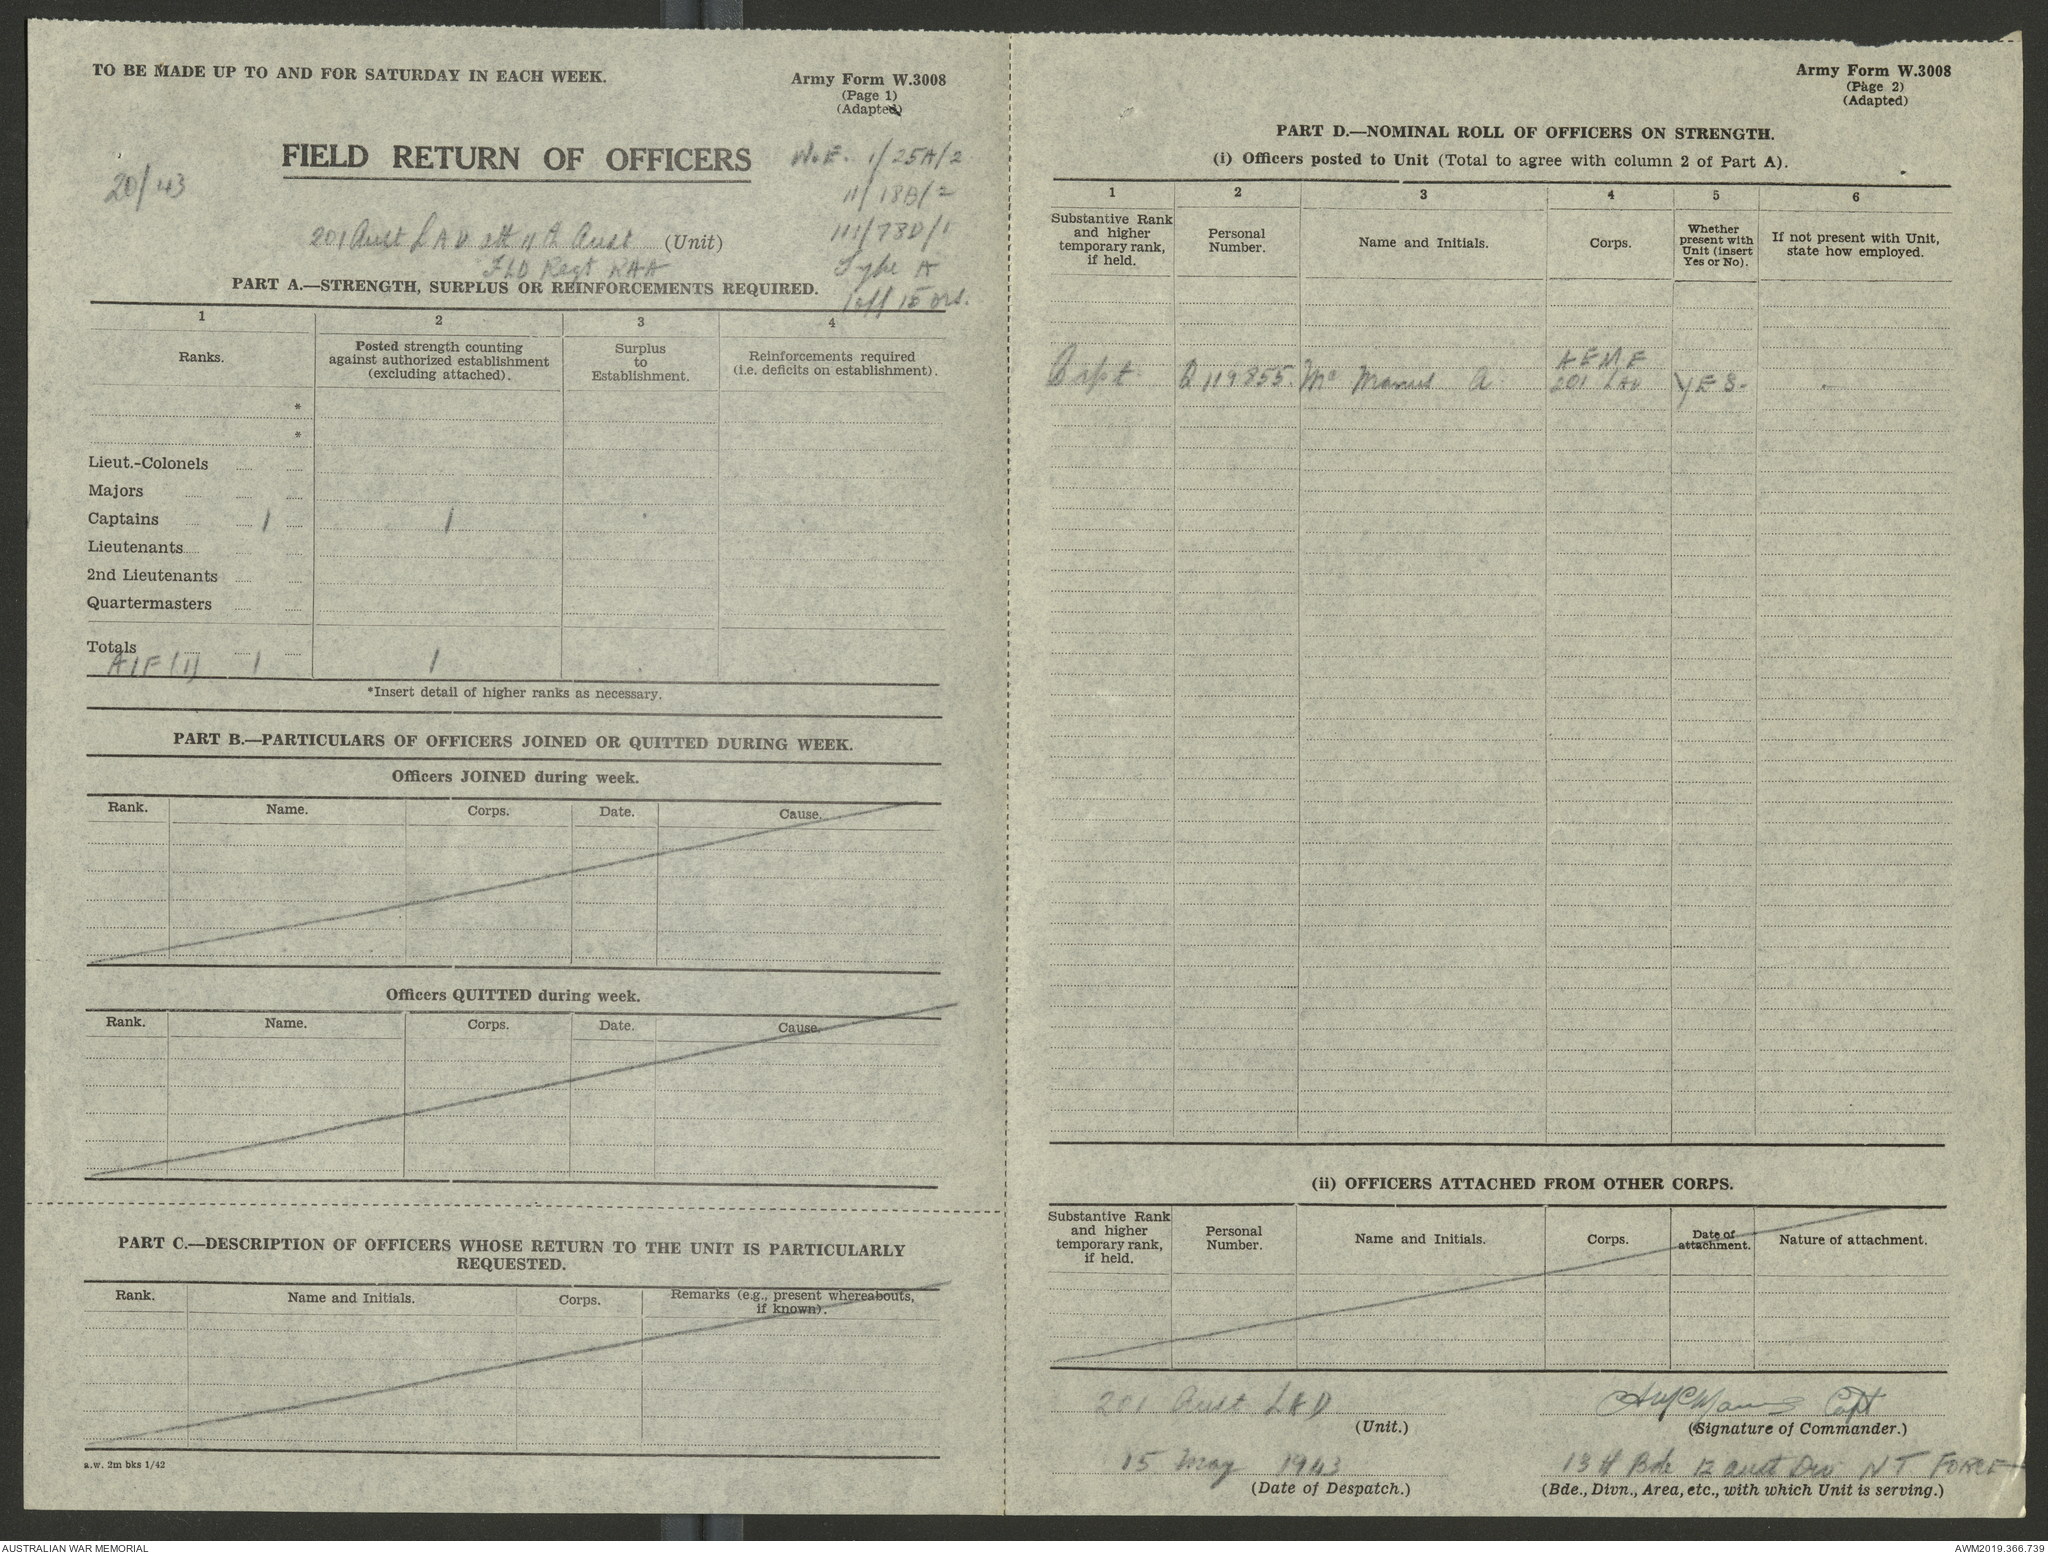 TO BE MADE UP TO AND FOR SATURDAY IN EACH WEEK.
Army Form W.3008
(Page 1)
(Adapted)
FIELD RETURN OF OFFICERS
W.E. 1/25A/2
11/18B/2
111/78D/1
Type A
1 off 15 ors.
20/43
201 Aust LAD att 11th Aust (Unit)
FLD Regt RAA
PART A.—STRENGTH, SURPLUS OR REINFORCEMENTS REQUIRED.
1 2 3 4
Ranks.
Posted strength counting
against authorized establishment
(excluding attached).
Surplus
to
Establishment.
Reinforcements required
(i.e. deficits on establishment).
*
*
Lieut.-Colonels
Majors
Captains 1 1
Lieutenants
2nd Lieutenants
Quartermasters
Totals
AIF (1) 1 1
*Insert detail of higher ranks as necessary.
PART B.—PARTICULARS OF OFFICERS JOINED OR QUITTED DURING WEEK.
Officers JOINED during week.
Rank. Name. Corps. Date. Cause.
Officers QUITTED during week.
Rank. Name. Corps. Date. Cause.
PART C.—DESCRIPTION OF OFFICERS WHOSE RETURN TO THE UNIT IS PARTICULARLY
REQUESTED.
Rank. Name and Initials. Corps.
Remarks (e.g., present whereabouts,
if known).
a.w. 2m bks 1/42
Army Form W.3008
(Page 2)
(Adapted)
PART D.—NOMINAL ROLL OF OFFICERS ON STRENGTH.
(i) Officers posted to Unit (Total to agree with column 2 of Part A).
1 2 3 4 5 6
Substantive Rank
and higher
temporary rank,
if held.
Personal
Number.
Name and Initials.
Corps.
Whether
present with
Unit (insert
Yes or No).
If not present with Unit,
state how employed.
AEME
Capt Q119855 Mc Manus A 201 LAD YES -
(ii) OFFICERS ATTACHED FROM OTHER CORPS.
Substantive Rank
and higher
temporary rank,
if held.
Personal
Number.
Name and Initials.
Corps.
Date of
attachment.
Nature of attachment.
201 Aust LAD
(Unit.)
A McManus Capt
(Signature of Commander.)
15 May 1943
(Date of Despatch.)
13 Bde 12 Aust Div NT FORCE
(Bde., Divn., Area, etc., with which Unit is serving.)
AUSTRALIAN WAR MEMORIAL
AWM2019.366.739